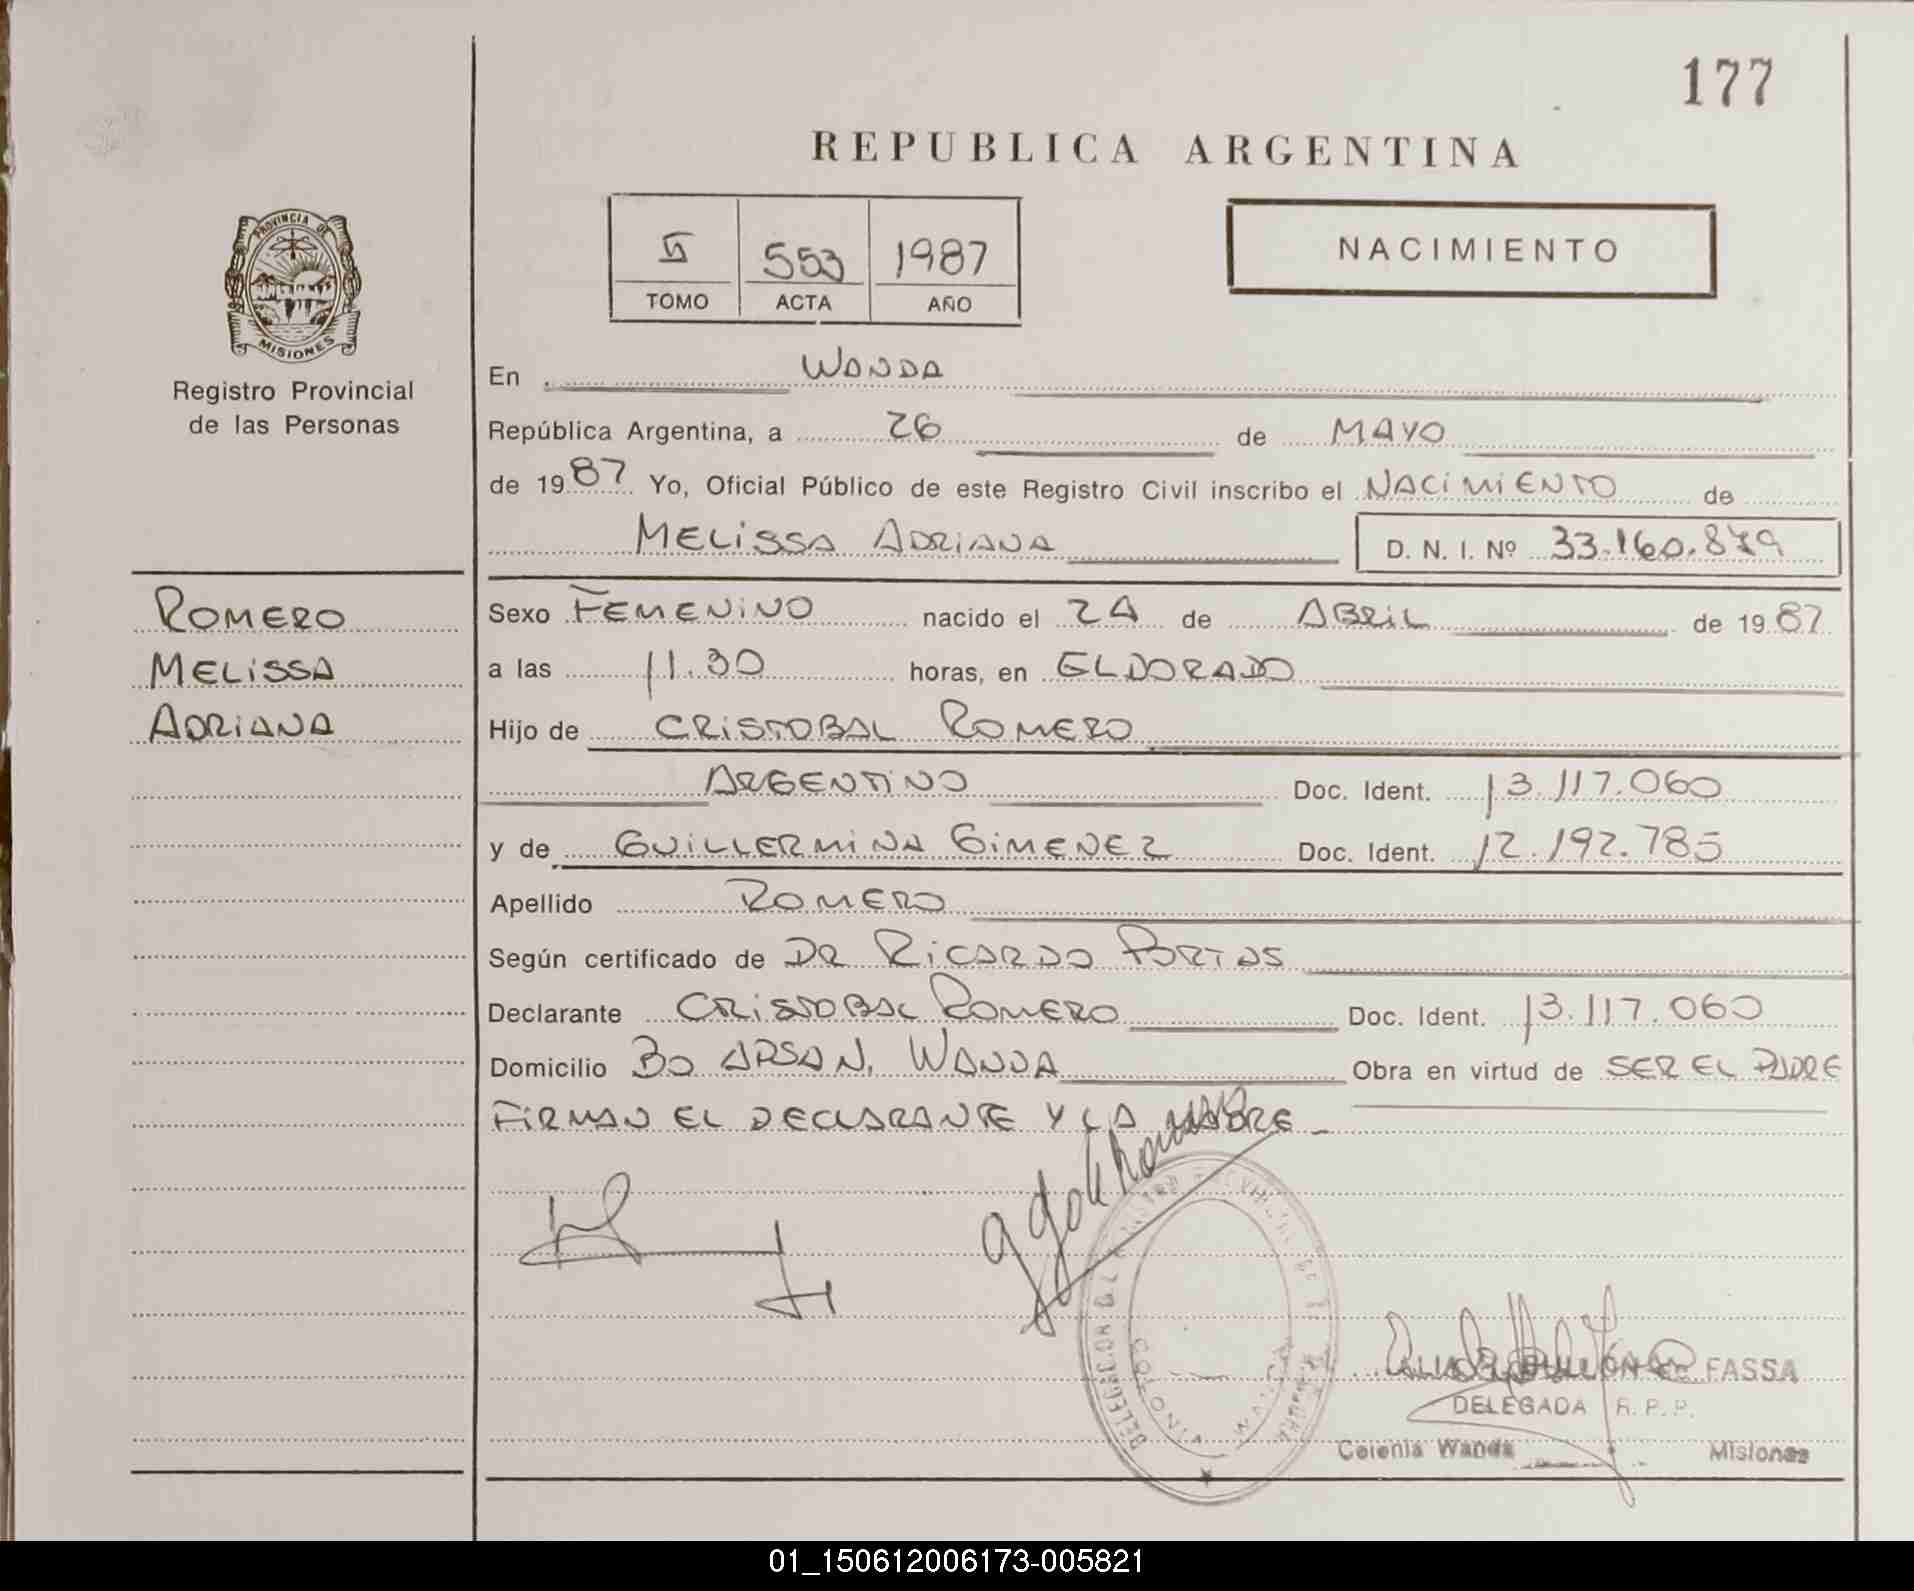 177
REPUBLICA ARGENTINA
553 1987
TOMO ACTA AÑO
NACIMIENTO
PROVINCIA DE
MISIONES
Registro Provincial
de las Personas
En WANDA
República Argentina, a 26 de MAYO
de 1987 Yo, Oficial Público de este Registro Civil inscribo el NACIMIENTO de
MELISSA ADRIANA D. N. I. Nº 33.160.879
ROMERO
MELISSA
ADRIANA
Sexo FEMENINO nacido el 24 de ABRIL de 1987
a las 11.30 horas, en ELDORADO
Hijo de CRISTOBAL ROMERO
ARGENTINO Doc. Ident. 13.117.060
y de GUILLERMINA GIMENEZ Doc. Ident. 12.192.785
Apellido ROMERO
Según certificado de DR RICARDO PORTAS
Declarante CRISTOBAL ROMERO Doc. Ident. 13.117.060
Domicilio Bo ARSAN, WANDA Obra en virtud de SER EL PADRE
FIRMAN EL DECLARANTE Y LA MADRE
FASSA
DELEGADA R. P. P.
Colonia Wanda Misiones
01_150612006173-005821